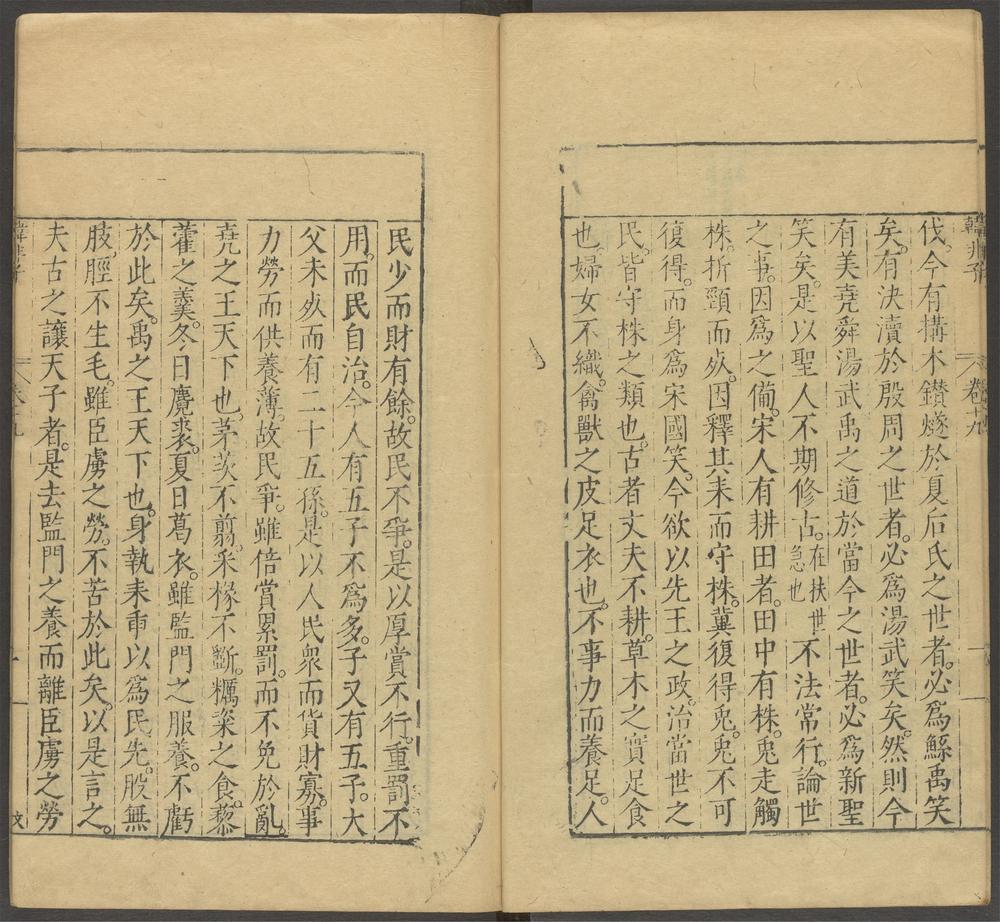 韓非子 卷十九 一
伐。今有搆木鑽燧於夏后氏之世者。必爲鯀禹笑
矣。有決瀆於殷周之世者。必爲湯武笑矣。然則今
有美堯舜湯武禹之道於當今之世者。必爲新聖
笑矣。是以聖人不期修古。在扶世急也不法常行。論世
之事。因爲之備。宋人有耕田者。田中有株。兎走觸
株。折頸而死。因釋其耒而守株。冀復得兎。兎不可
復得。而身爲宋國笑。今欲以先王之政。治當世之
民。皆守株之類也。古者丈夫不耕。草木之實足食
也。婦女不織。禽獸之皮足衣也。不事力而養足。人
民少而財有餘。故民不爭。是以厚賞不行。重罰不
用。而民自治。今人有五子不爲多。子又有五子。大
父未死而有二十五孫。是以人民衆而貨財寡。事
力勞而供養薄。故民爭。雖倍賞累罰。而不免於亂。
堯之王天下也。茅茨不翦。采椽不斷。糲粢之食。藜
藿之羹。冬日麑裘。夏日葛衣。雖監門之服養。不虧
於此矣。禹之王天下也。身執耒臿以爲民先。股無
胈。脛不生毛。雖臣虜之勞。不苦於此矣。以是言之。
夫古之讓天子者。是去監門之養而離臣虜之勞
韓非子 卷十九 一